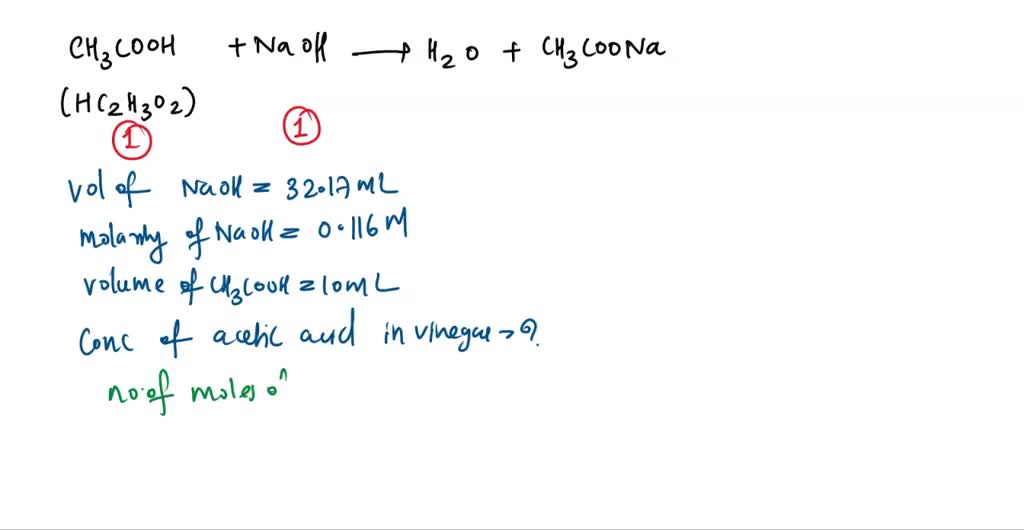 CH3COOH + NaOH → H2O + CH3COONa
(HC2H3O2)
1 1
Vol of NaOH = 32.17mL
Molarity of NaOH = 0.116M
Volume of CH3COOH = 10mL
Conc of acetic acid in vinegar → ?
no. of moles